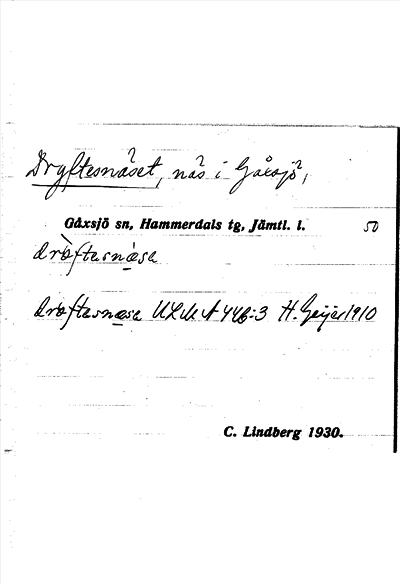 Dryftesnäset, näs i Gåxsjö,
Gåxsjö sn, Hammerdals tg, Jämtl. l. 50
dræftesnæse
dræftesnæse ULMA 446:3 H. Geijer 1910
C. Lindberg 1930.